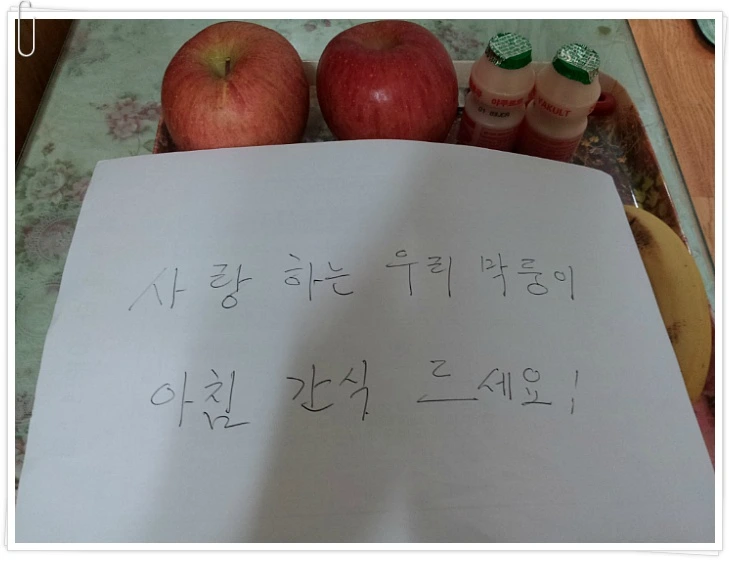 YAKULT
사랑 하는 우리 막둥이
아침 간식 드세요!